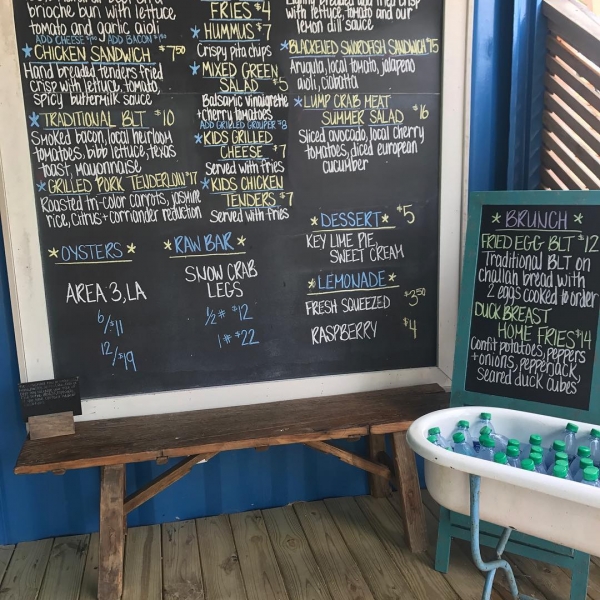 brioche bun with lettuce
tomato and garlic aioli
ADD CHEESE ADD BACON
CHICKEN SANDWICH $7.50
Hand breaded tenders fried
crisp with lettuce, tomato,
spicy buttermilk sauce
TRADITIONAL BLT $10
Smoked bacon, local heirloom
tomatoes, bibb lettuce, texas
toast, mayonnaise
GRILLED PORK TENDERLOIN $17
Roasted tri-color carrots, jasmine
rice, citrus + corriander reduction
FRIES $4
HUMMUS $7
Crispy pita chips
MIXED GREEN
SALAD $5
Balsamic vinaigrette
cherry tomatoes
ADD GRILLED GROUPER $8
KIDS GRILLED
CHEESE $7
Served with fries
KIDS CHICKEN
TENDERS $7
Served with fries
with lettuce, tomato and our
lemon dill sauce
BLACKENED SWORDFISH SANDWICH $15
Arugula, local tomato, jalapeno
aioli, ciabatta
LUMP CRAB MEAT
SUMMER SALAD $16
Sliced avocado, local cherry
tomatoes, diced european
cucumber
OYSTERS
AREA 3, LA
6/$11
12/$19
RAW BAR
SNOW CRAB
LEGS
1/2# $12
1# $22
DESSERT $5
KEY LIME PIE,
SWEET CREAM
LEMONADE
FRESH SQUEEZED $3.50
RASPBERRY $4
BRUNCH
FRIED EGG BLT $12
Traditional BLT on
challah bread with
2 eggs cooked to order
DUCK BREAST
HOME FRIES $14
Confit potatoes, peppers
+ onions, pepperjack,
seared duck cubes